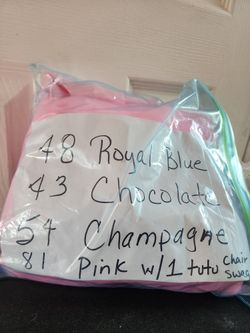 48 Royal Blue
43 Chocolate
54 Champagne
81 Pink w/1 tutu chair
swag